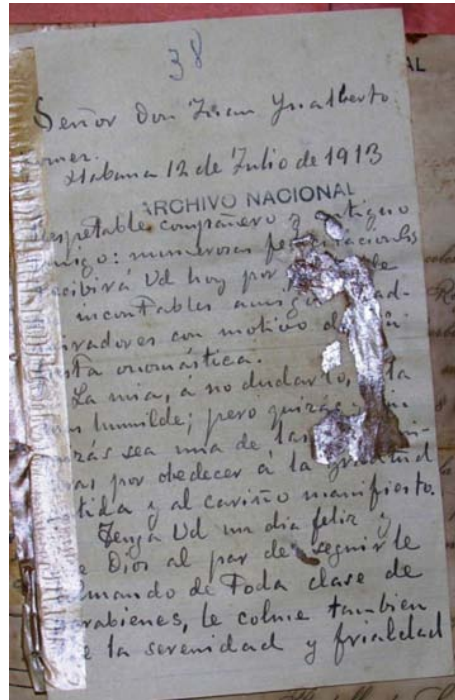 38
AL
Señor Don Juan Gualberto
Habana 12 de Julio de 1913
ARCHIVO NACIONAL
respetable compañero y antiguo
migo: numerosas
ecibirá Ud hoy por de
incontables amig ad-
iradores con motivo d
sta onomástica.
La mia, á no dudarlo, ta
humilde; pero quizás
zás sea una de las
as por obedecer á la gratitud
tida y al cariño manifiesto.
Tenga Ud un dia feliz y
e Dios al par de seguirle
mando de toda clase de
arabienes, le colme tambien
e la serenidad y frialdad